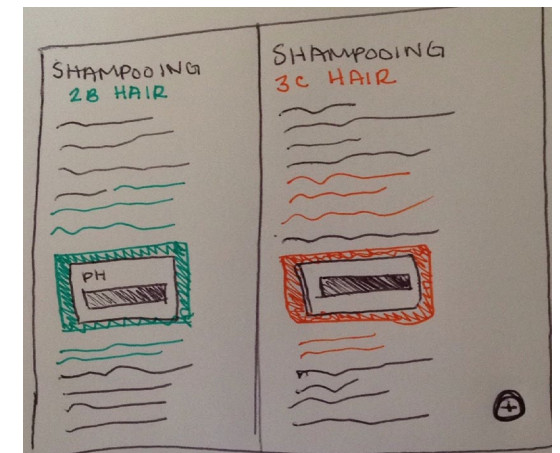 SHAMPOOING
2B HAIR
PH
SHAMPOOING
3C HAIR